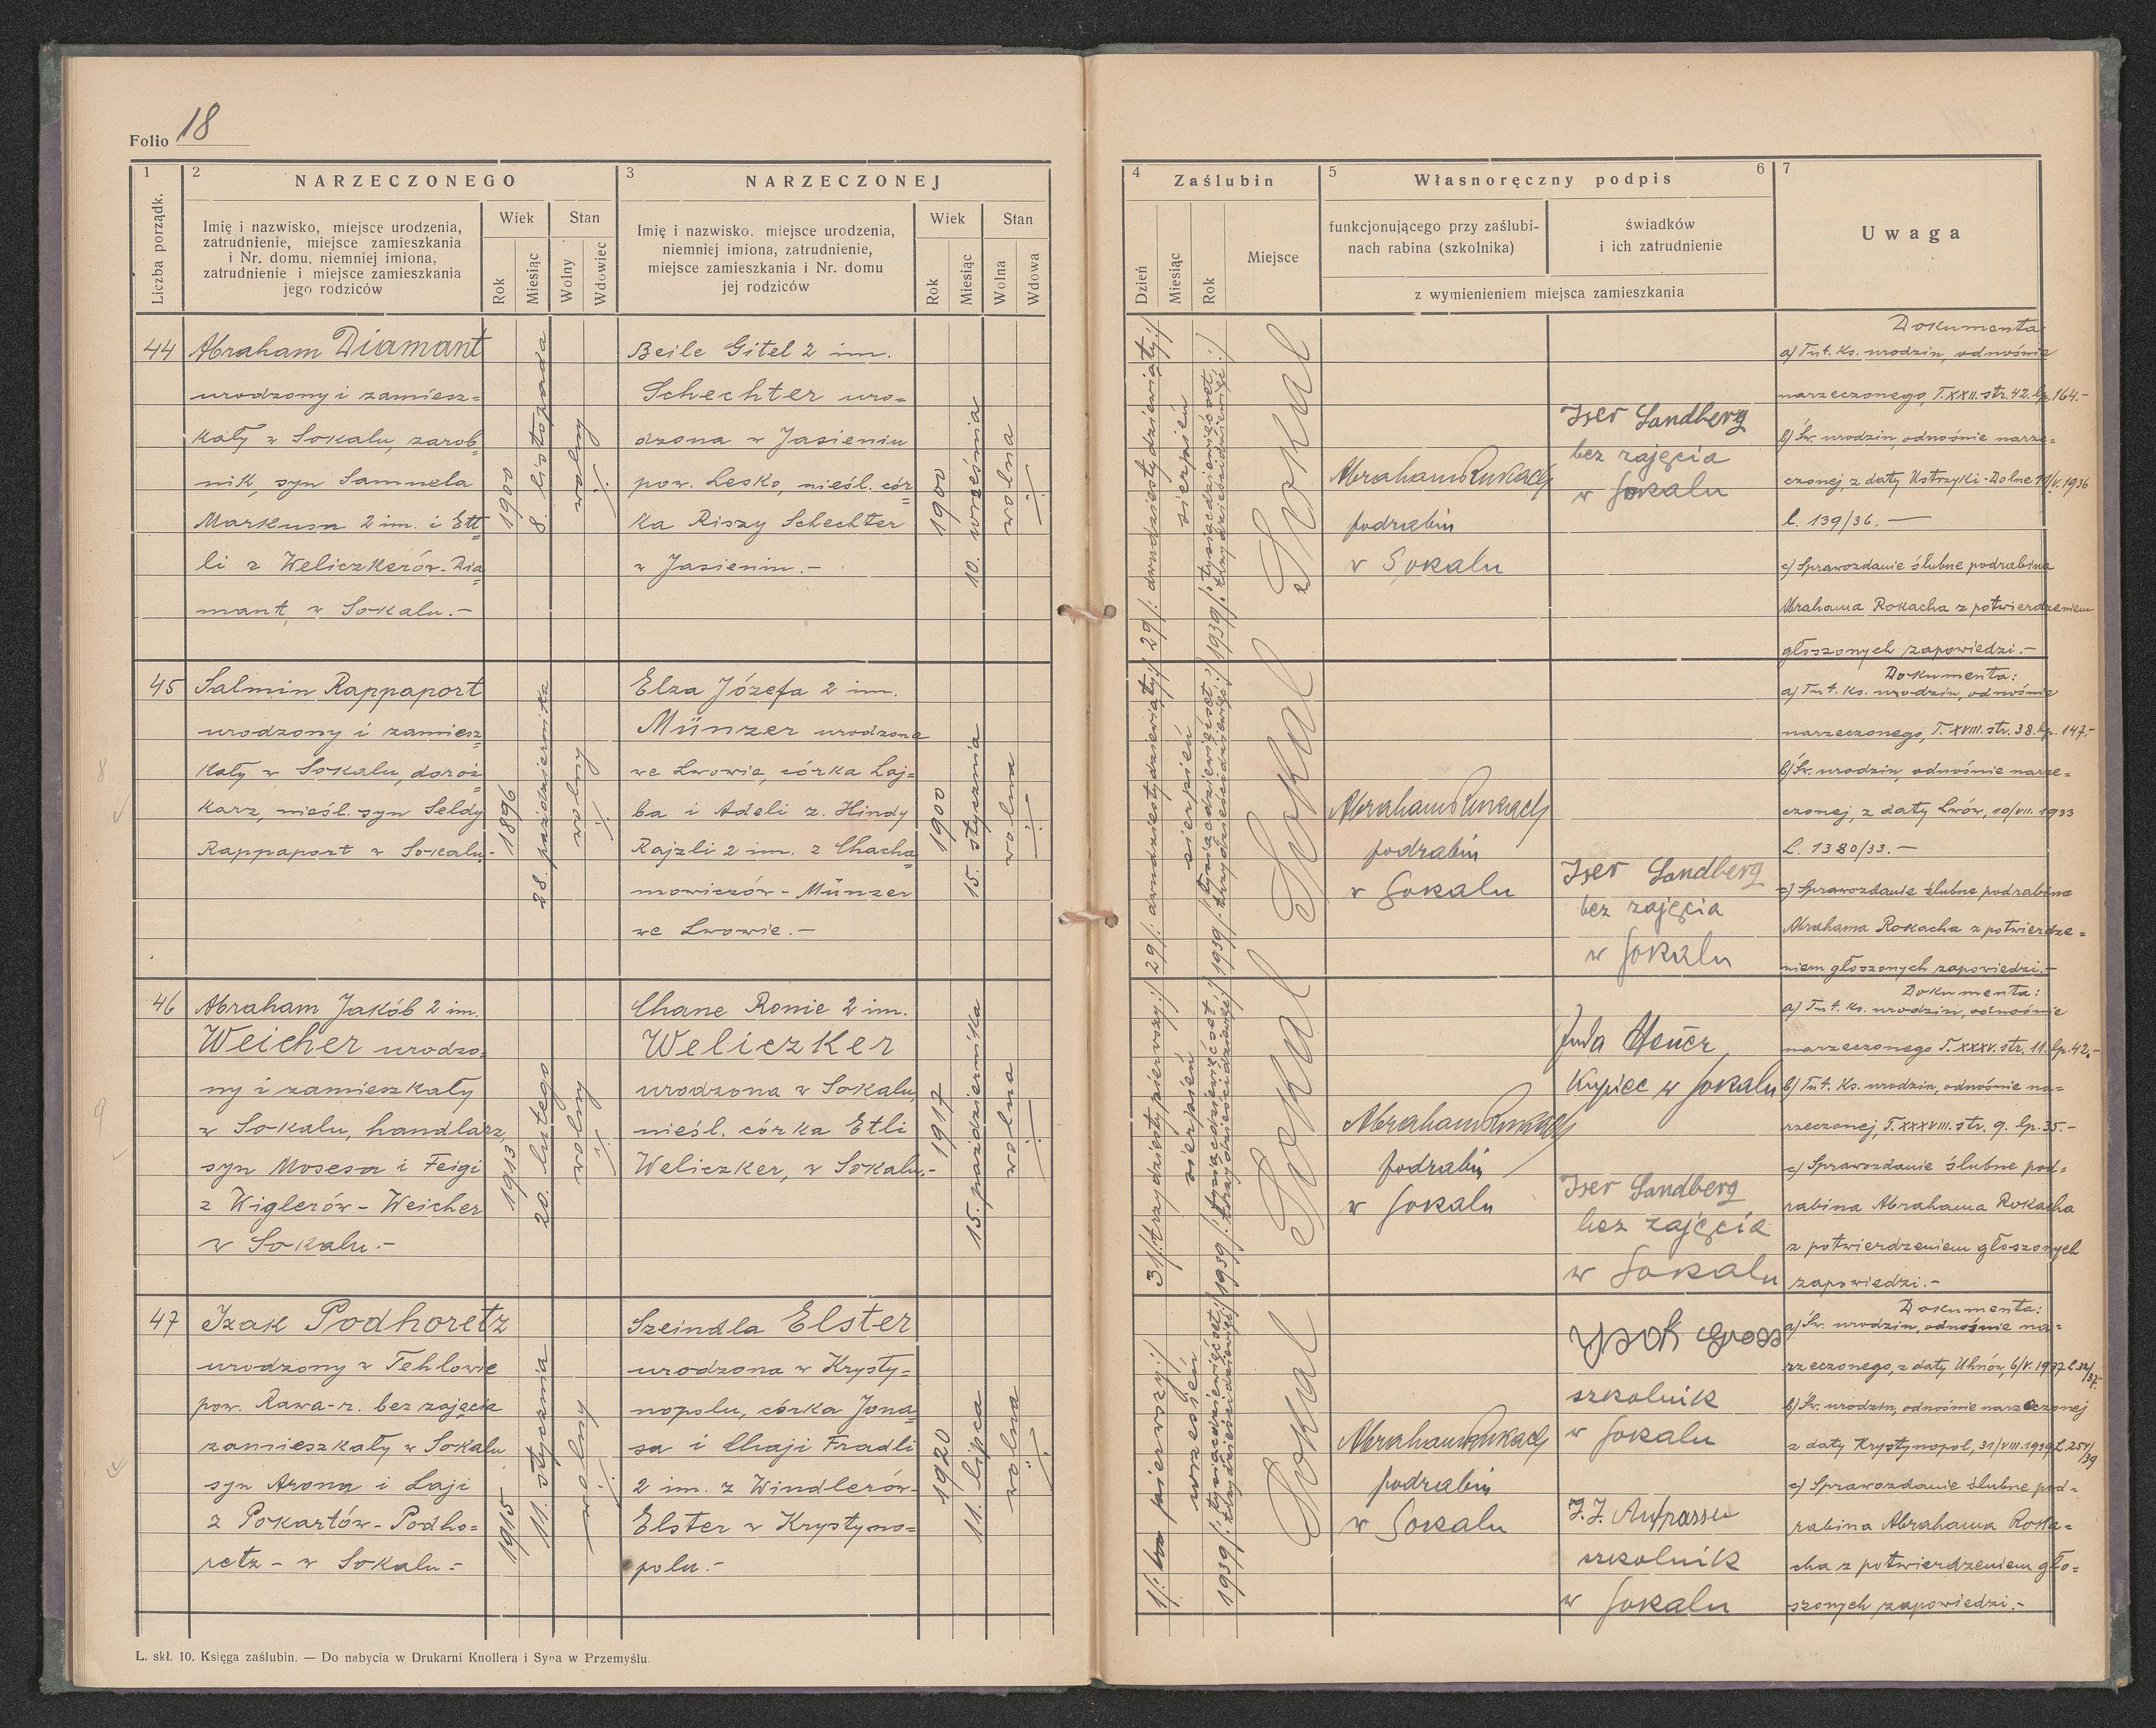 Folio 18
1
2
NARZECZONEGO
3
NARZECZONEJ
Liczba porządk.
Imię i nazwisko, miejsce urodzenia,
zatrudnienie, miejsce zamieszkania
i Nr. domu, niemniej imiona,
zatrudnienie i miejsce zamieszkania
jego rodziców
Wiek
Stan
Rok
Miesiąc
Wolny
Wdowiec
Imię i nazwisko. miejsce urodzenia,
niemniej imiona, zatrudnienie,
miejsce zamieszkania i Nr. domu
jej rodziców
Wiek
Stan
Rok
Miesiąc
Wolna
Wdowa
4
Zaślubin
5
Własnoręczny podpis
6
7
Dzień
Miesiąc
Rok
Miejsce
funkcjonującego przy zaślubi-
nach rabina (szkolnika)
świadków
i ich zatrudnienie
z wymienieniem miejsca zamieszkania
Uwaga
44
Abraham Diamant
urodzony i zamiesz=
kały w Sokalu, zarob=
nik, syn Samuela
Markusa 2 im. i Ett=
li z Weliczkerów-Dia=
mant, w Sokalu.-
1900
8. listopada
wolny
Beile Gitel 2 im.
Schechter uro=
dzona w Jasieniu
pow. Lesko, nieśl. cór=
ka Riszy Schechter
w Jasieniu.-
1900
10. września
wolna
29/: dwudziesty dziewiąty:/
sierpień
1939/: tysiąc dziewięćset
trzydzieści dziewięć:/
Sokal
Abraham Rokach
podrabin
w Sokalu
Iser Sandberg
bez zajęcia
w Sokalu
Dokumenta:
a) Tut. Ks. urodzin, odnośnie
narzeczonego, T.XXII. str. 42. lp. 164.-
b) Św. urodzin, odnośnie narze=
czonej, z daty Ustrzyki-Dolne 11/V. 1936
l. 139/36.—
c) Sprawozdanie ślubne podrabina
Abrahama Rokacha z potwierdzeniem
głoszonych zapowiedzi.-
45
Salmin Rappaport
urodzony i zamiesz=
kały w Sokalu, doroż=
karz, nieśl. syn Seldy
Rappaport w Sokalu.-
1896
28. października
wolny
Elza Józefa 2 im.
Münzer urodzona
we Lwowie, córka Laj=
ba i Adeli z. Hindy
Rajzli 2 im. z Chacha=
mowiczów - Münzer
we Lwowie.-
1900
15. stycznia
wolna
29/: dwudziesty dziewiąty:/
sierpień
1939/: tysiąc dziewięćset
trzydzieści dziewięć:/
Sokal
Abraham Rokach
podrabin
w Sokalu
Iser Sandberg
bez zajęcia
w Sokalu
Dokumenta:
a) Tut. Ks. urodzin, odnośnie
narzeczonego, T. XVIII. str. 38. lp. 147.-
b) Św. urodzin, odnośnie narze=
czonej, z daty Lwów, 10/VII. 1933
L. 1380/33.—
c) Sprawozdanie ślubne podrabina
Abrahama Rokacha z potwierdze=
niem głoszonych zapowiedzi.-
46
Abraham Jakób 2 im.
Weicher urodzo=
ny i zamieszkały
w Sokalu, handlarz,
syn Mosesa i Feigi
z Wiglerów - Weicher
w Sokalu.-
1913
20. lutego
wolny
Chane Ronie 2 im.
Weliczker
urodzona w Sokalu,
nieśl. córka Etli
Weliczker, w Sokalu.-
1917
15. października
wolna
31/: trzydziesty pierwszy:/
sierpień
1939/: tysiąc dziewięćset
trzydzieści dziewięć:/
Sokal
Abraham Rokach
podrabin
w Sokalu
Juda
Kupiec w Sokalu
Iser Sandberg
bez zajęcia
w Sokalu
Dokumenta:
a) Tut. Ks. urodzin, odnośnie
narzeczonego T. XXXV. str. 11. lp. 42.-
b) Tut. Ks. urodzin, odnośnie na=
rzeczonej, T. XXXVIII. str. 9. lp. 35.-
c) Sprawozdanie ślubne pod=
rabina Abrahama Rokacha
z potwierdzeniem głoszonych
zapowiedzi.-
47
Izak Podhoretz
urodzony w Tehlowie
pow. Rawa-r. bez zajęcia
zamieszkały w Sokalu
syn Arona i Laji
z Pokartów - Podho=
retz - w Sokalu.-
1915
11. stycznia
wolny
Szeindla Elster
urodzona w Krysty=
nopolu, córka Jona=
sa i Chaji Fradli
2 im. z Windlerów-
Elster w Krystyno=
polu.-
1920
11. lipca
wolna
1/: pierwszy:/
wrzesień
1939/: tysiąc dziewięćset
trzydzieści dziewięć:/
Sokal
Abraham Rokach
podrabin
w Sokalu
Gross
szkolnik
w Sokalu
J.J. Aufpasser
szkolnik
w Sokalu
Dokumenta:
a) Św. urodzin, odnośnie na=
rzeczonego, z daty Uhnów, 6/V. 1937 l. 32/37.-
b) Św. urodzin, odnośnie narzeczonej
z daty Krystynopol, 31/VIII. 1939 L. 254/39
c) Sprawozdanie ślubne pod=
rabina Abrahama Roka=
cha z potwierdzeniem gło=
szonych zapowiedzi.-
L. skł. 10. Księga zaślubin. — Do nabycia w Drukarni Knollera i Syna w Przemyślu.